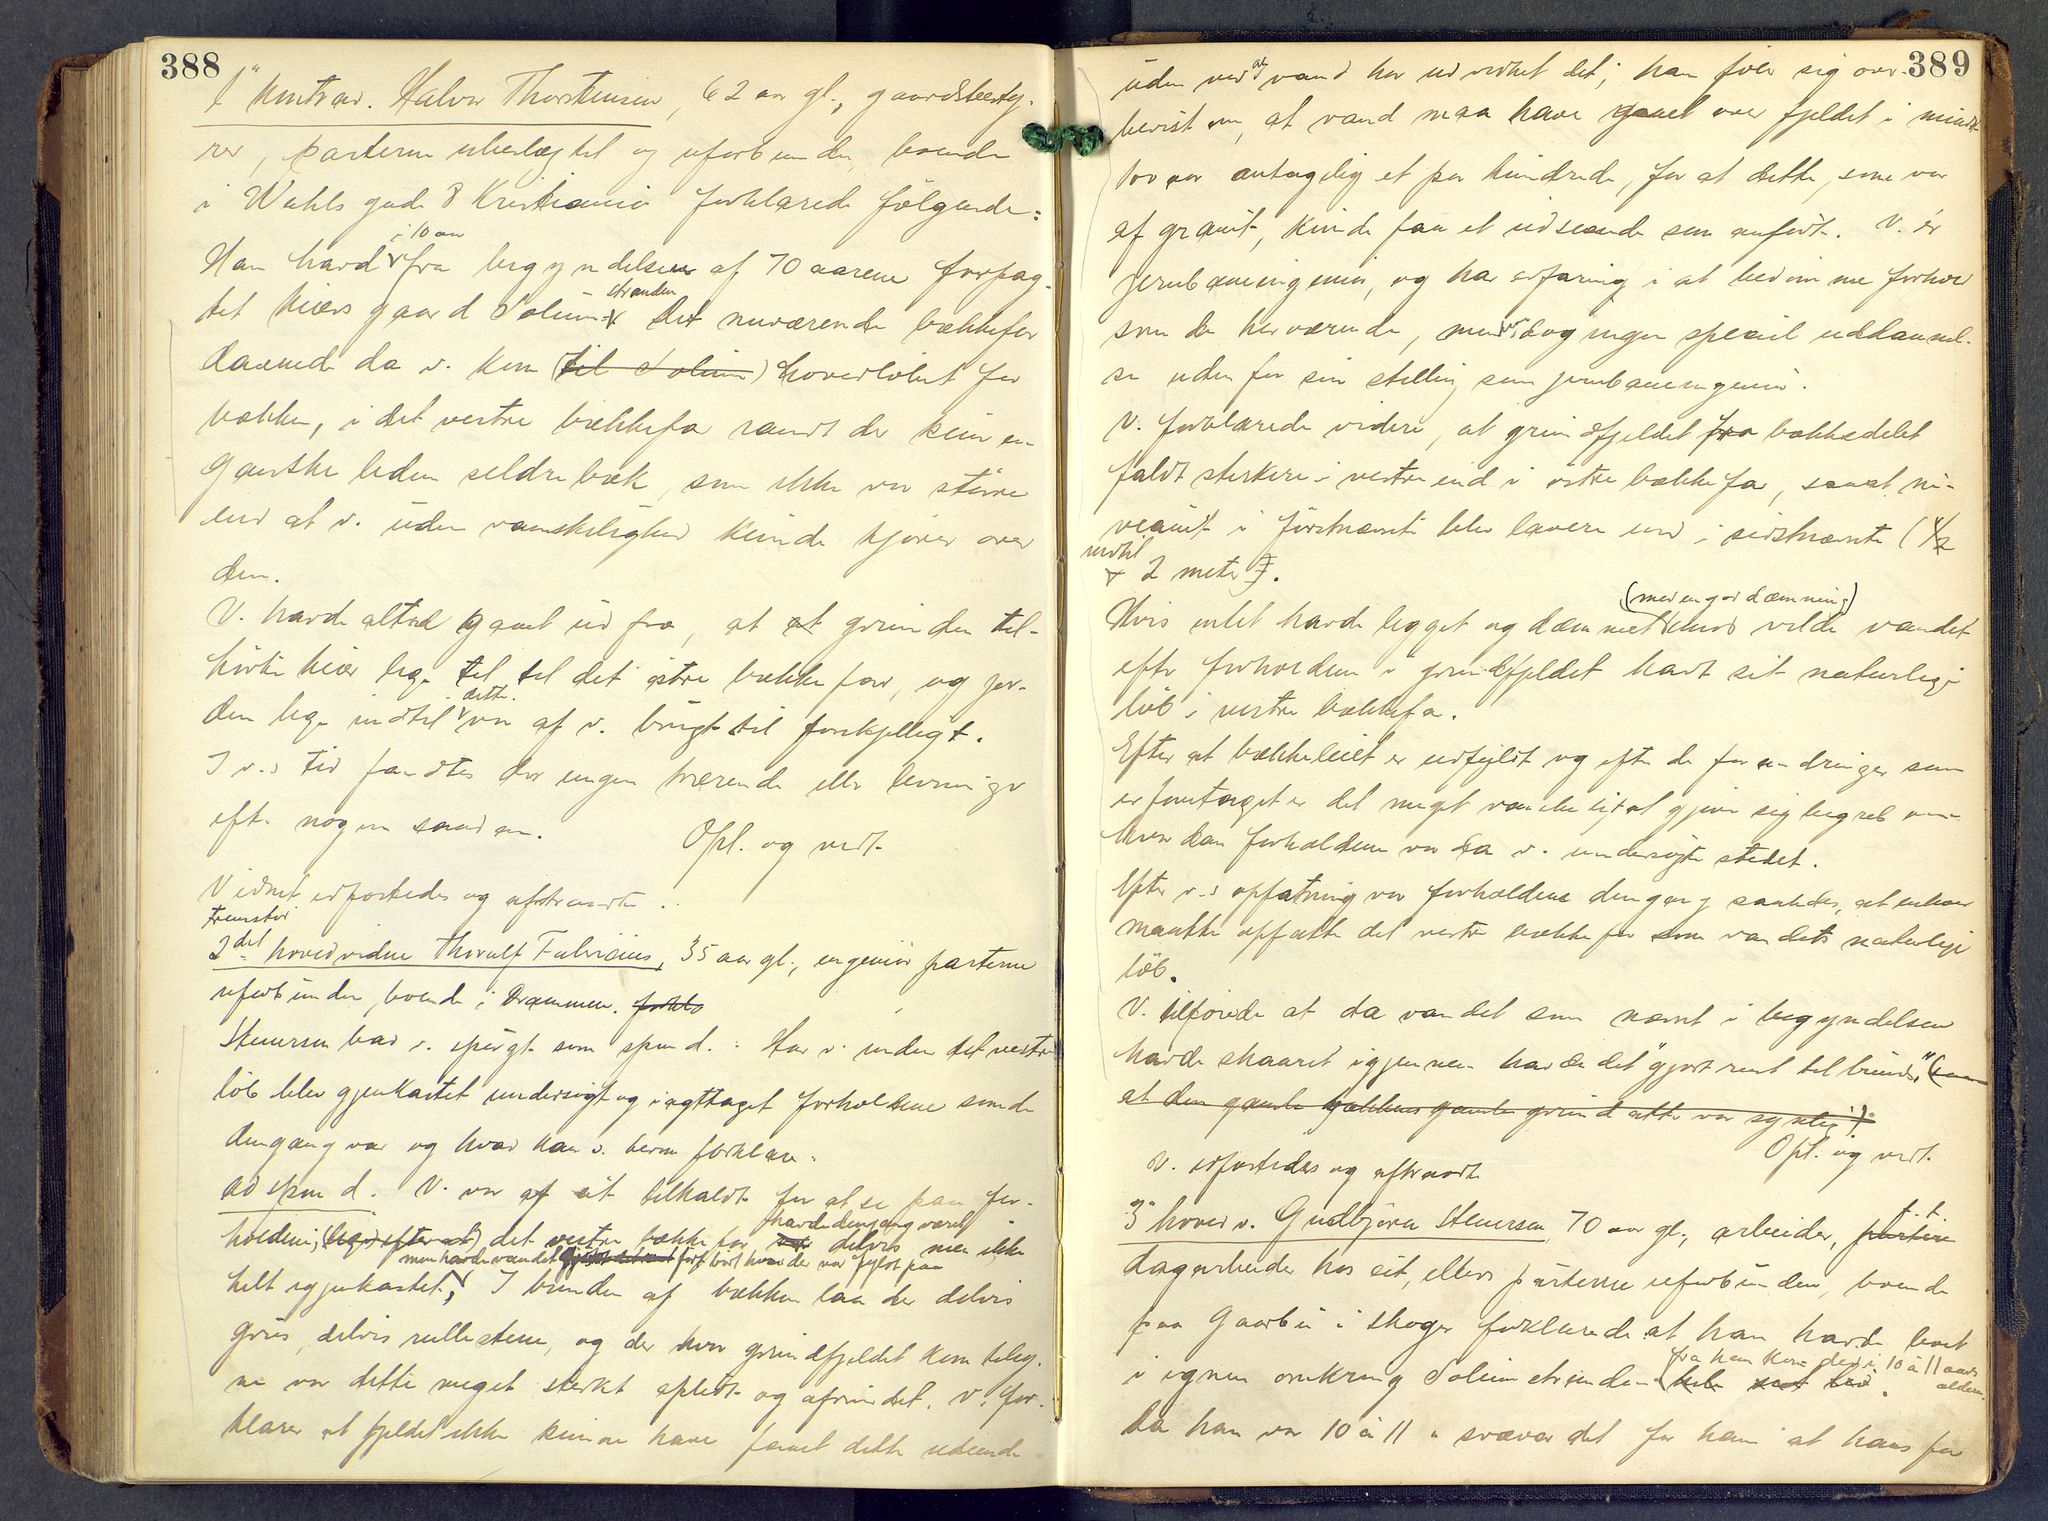 388
1ste kontrav. Halvor Thorstensen, 62 aar gl., gaardsbesty-
rer, parterne ubeslægtet og uforbunden, boende
i Wahls gade 8 Kristiania forklarede følgende:
i 10 aar
Han havde fra begyndelsen af 70 aarene forpag-
stranden
tet Kiærs gaard Solum- Det nuværende bækkefar
dannede da v. kom (til Solum) hovedløbet for
bækken, i det vestre bækkefar randt der kun en
ganske liden sildrebæk, som ikke var større
end at v. uden vanskelighed kunde kjøre over
den.
V. havde altid gaaet ud fra, at at grunden til-
hørte Kiær lige til til det østre bækkefar, og jor-
dette
den lige indtil var af v. brugt til forskjelligt.
I v.s tid fandtes der ingen kværende eller levninger
efter nogen saadan.
Opl. og vedt.
Vidnet edfæstedes og aftraadte.
Fremstod
2det hovedvidne Thoralf Fabricius, 35 aar gl., ingeniør parterne
uforbunden, boende i Drammen. forkla
Steuersen bad v. spurgt som spm d.: Har v. inden det vestre
løb blev gjenkastet undersøgt og iagttaget forholdene som de
dengang var og hvad kan v. herom forklare.
ad spm d. V. var af cit. tilkaldt for at se paa for-
havde dengang været
holdene; (lige efter at) det vestre bækkefar var delvis men ikke
men havde vandet gjort det rent ført bort hvad der var fyldt paa
helt igjenkastet, I bunden af bækken laa der delvis
grus, delvis rullestene, og der hvor grundfjeldet kom tilsy-
ne var dette meget sterkt slidt og afrundet. V. for-
klarer at fjeldet ikke kunne have faaet dette udseende
389
uden ved at vand har udvirket det; han føler sig over-
bevist om, at vand maa have gaaet over fjeldet i mindst
100 aar antagelig et par hundrede, for at dette, som var
af granit, kunde faa et udseende som anført. V. er
jernbaneingeniør, og har erfaring i at bedømme forhold
som de herværende, men har dog ingen speciel uddannel-
se uden for sin stilling som jernbaneingeniør.
V. forklarede videre, at grundfjeldet fra bækkedelet
faldt sterkere i vestre end i østre bækkefar, saa at ni-
veauet i førstnævnte blev lavere end i sidstnævnte (1/2
indtil
2 meter).
(med en jorddæmning)
Hvis intet havde ligget og dæmmet imod vilde vandet
efter forholdene i grundfjeldet havt sit naturlige
løb i vestre bækkefar.
Efter at bækkeleiet er udfyldt og efter de forandringer som
er foretaget er det meget vanskeligt at gjøre sig begreb om
hvordan forholdene var da v. undersøgte stedet.
Efter v.s opfatning var forholdene dengang saaledes, at enhver
maatte opfatte det vestre bækkefar som vandets naturlige
løb.
V. tilføiede at da vandet som nævnt i begyndelsen
havde skaaret igjennem havde det "gjort rent til bunds," (saa
at den gamle bækkens gamle grund atter var synlig).
Opl. og vedt.
V. edfæstedes og aftraadte
3die hovedv. Gudbjørn Steuersen 70 aar gl., arbeider, parterne t.t.
dagarbeider hos cit., ellers parterne uforbunden, boende
paa Gaarbu i Skoger forklarede at han havde levet
fra han kom der i 10 à 11 aars
alderen
i egnen omkring Solumstranden hele sit liv.
Da han var 10 à 11 a svæver det for ham at hans far